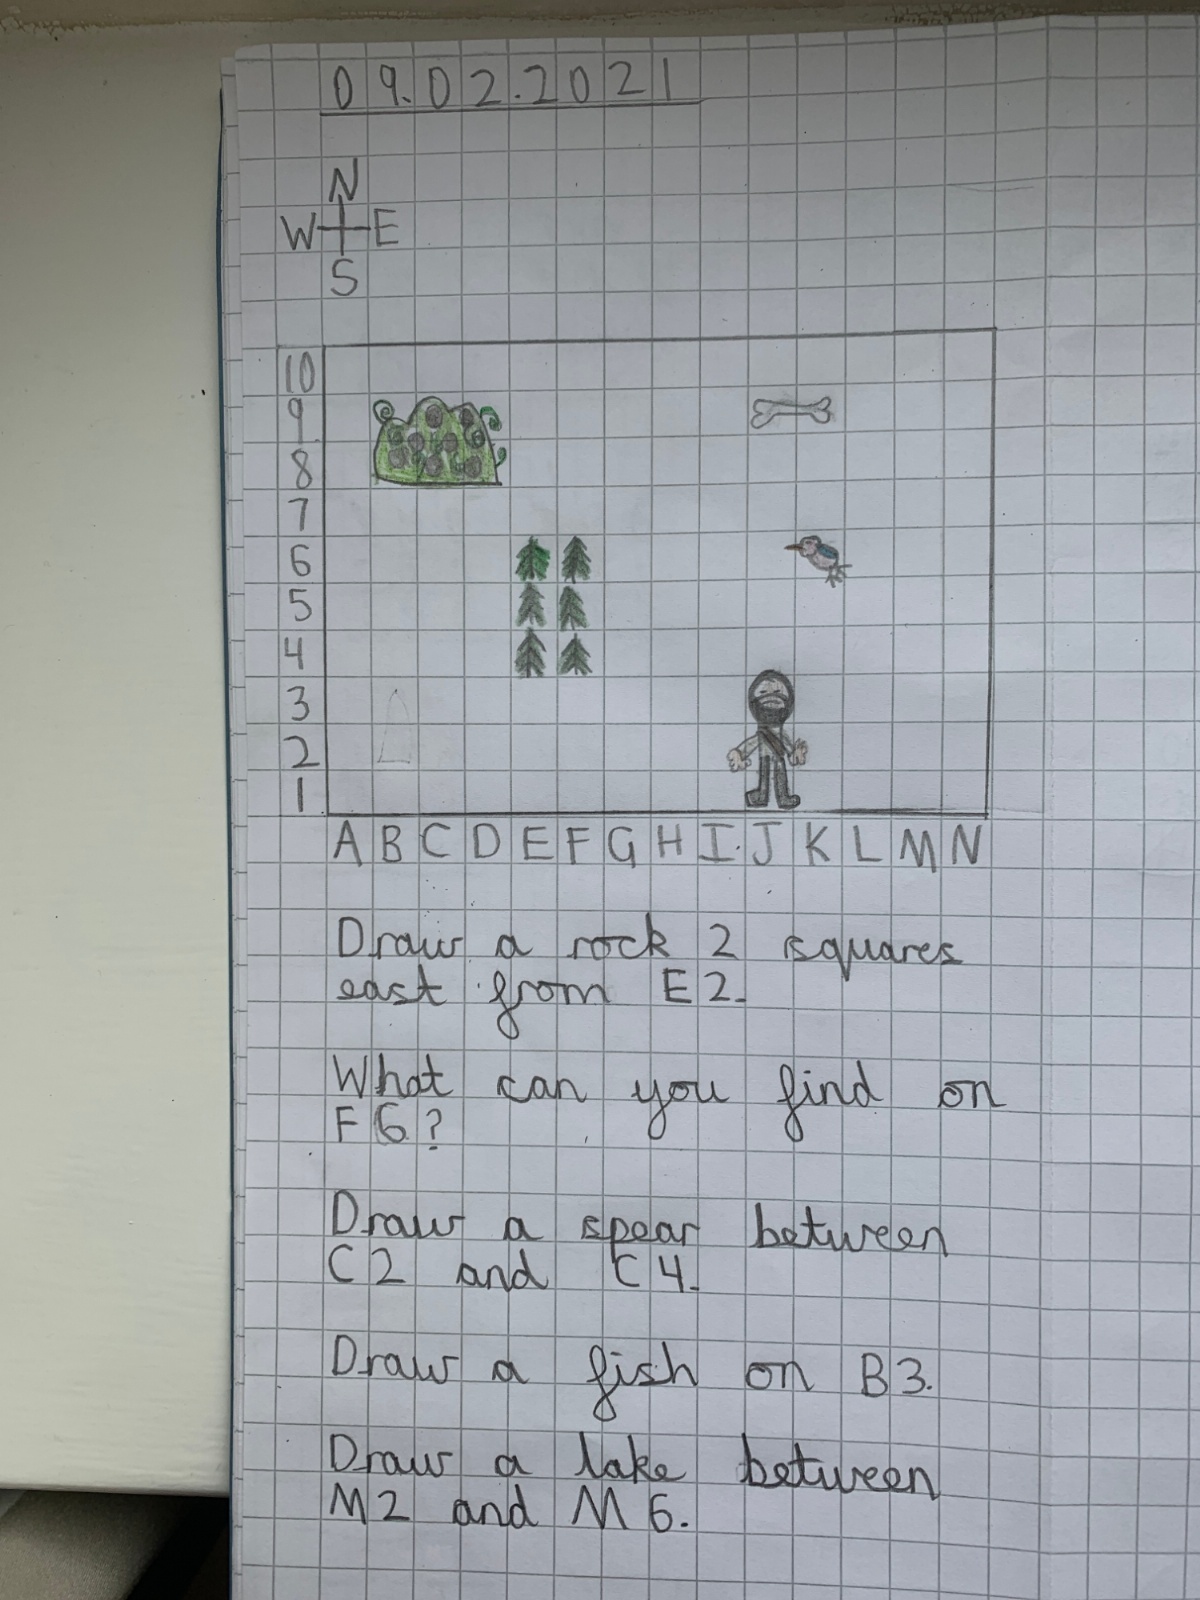 09.02.2021
N
W E
S
10
9
8
7
6
5
4
3
2
1
A B C D E F G H I J K L M N
Draw a rock 2 squares
east from E2.
What can you find on
F6?
Draw a spear between
C2 and C4.
Draw a fish on B3.
Draw a lake between
M2 and M6.